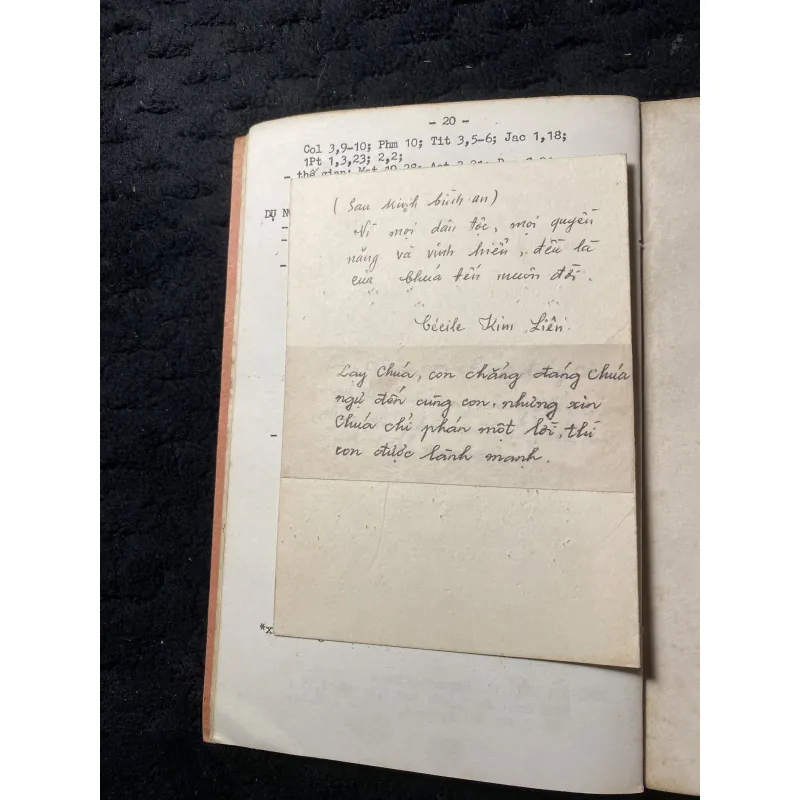 - 20 -
Col 3,9-10; Phm 10; Tit 3,5-6; Jac 1,18;
1Pt 1,3,23; 2,2;
- thế gian: Mat 19,28;
DỤ
(Sau kinh bình an)
Vì mọi dân tộc, mọi quyền
năng và vinh hiển, đều là
của Chúa đến muôn đời.
Cécile Kim Liên
Lạy Chúa, con chẳng đáng Chúa
ngự đến cùng con, nhưng xin
Chúa chỉ phán một lời, thì
con được lành mạnh.
*x